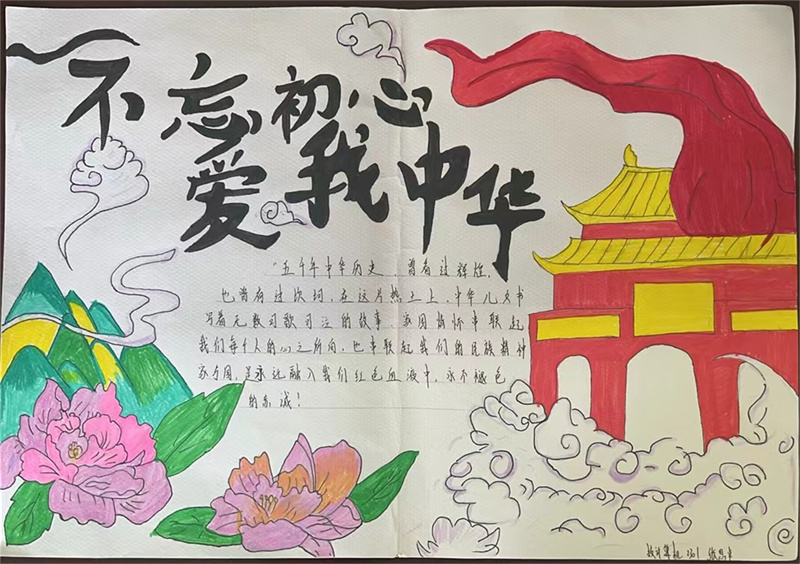 不忘初心
爱我中华
"五千年中华历史，曾有过辉煌，
也曾有过坎坷，在这片热土上，中华儿女书
写着无数可歌可泣的故事。家国情怀串联起
我们每个人的心之所向，也串联起我们的民族精神
家与国，是永远融入我们红色血液中，永不褪色
的赤诚！
2301